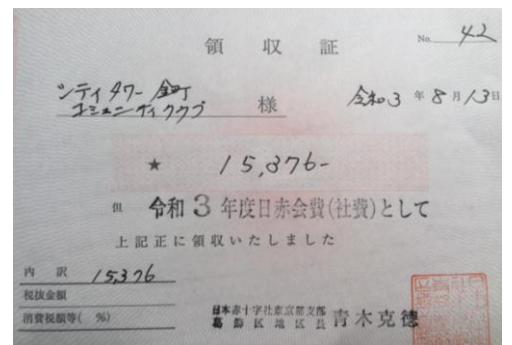 領収証
No. 42
シティタワー金町
コミュニティクラブ 様
令和3年8月13日
★ 15,376-
但 令和3年度日赤会費(社費)として
上記正に領収いたしました
内訳 15,376
税抜金額
消費税額等( %)
日本赤十字社東京都支部
葛飾区地区長 青木克德